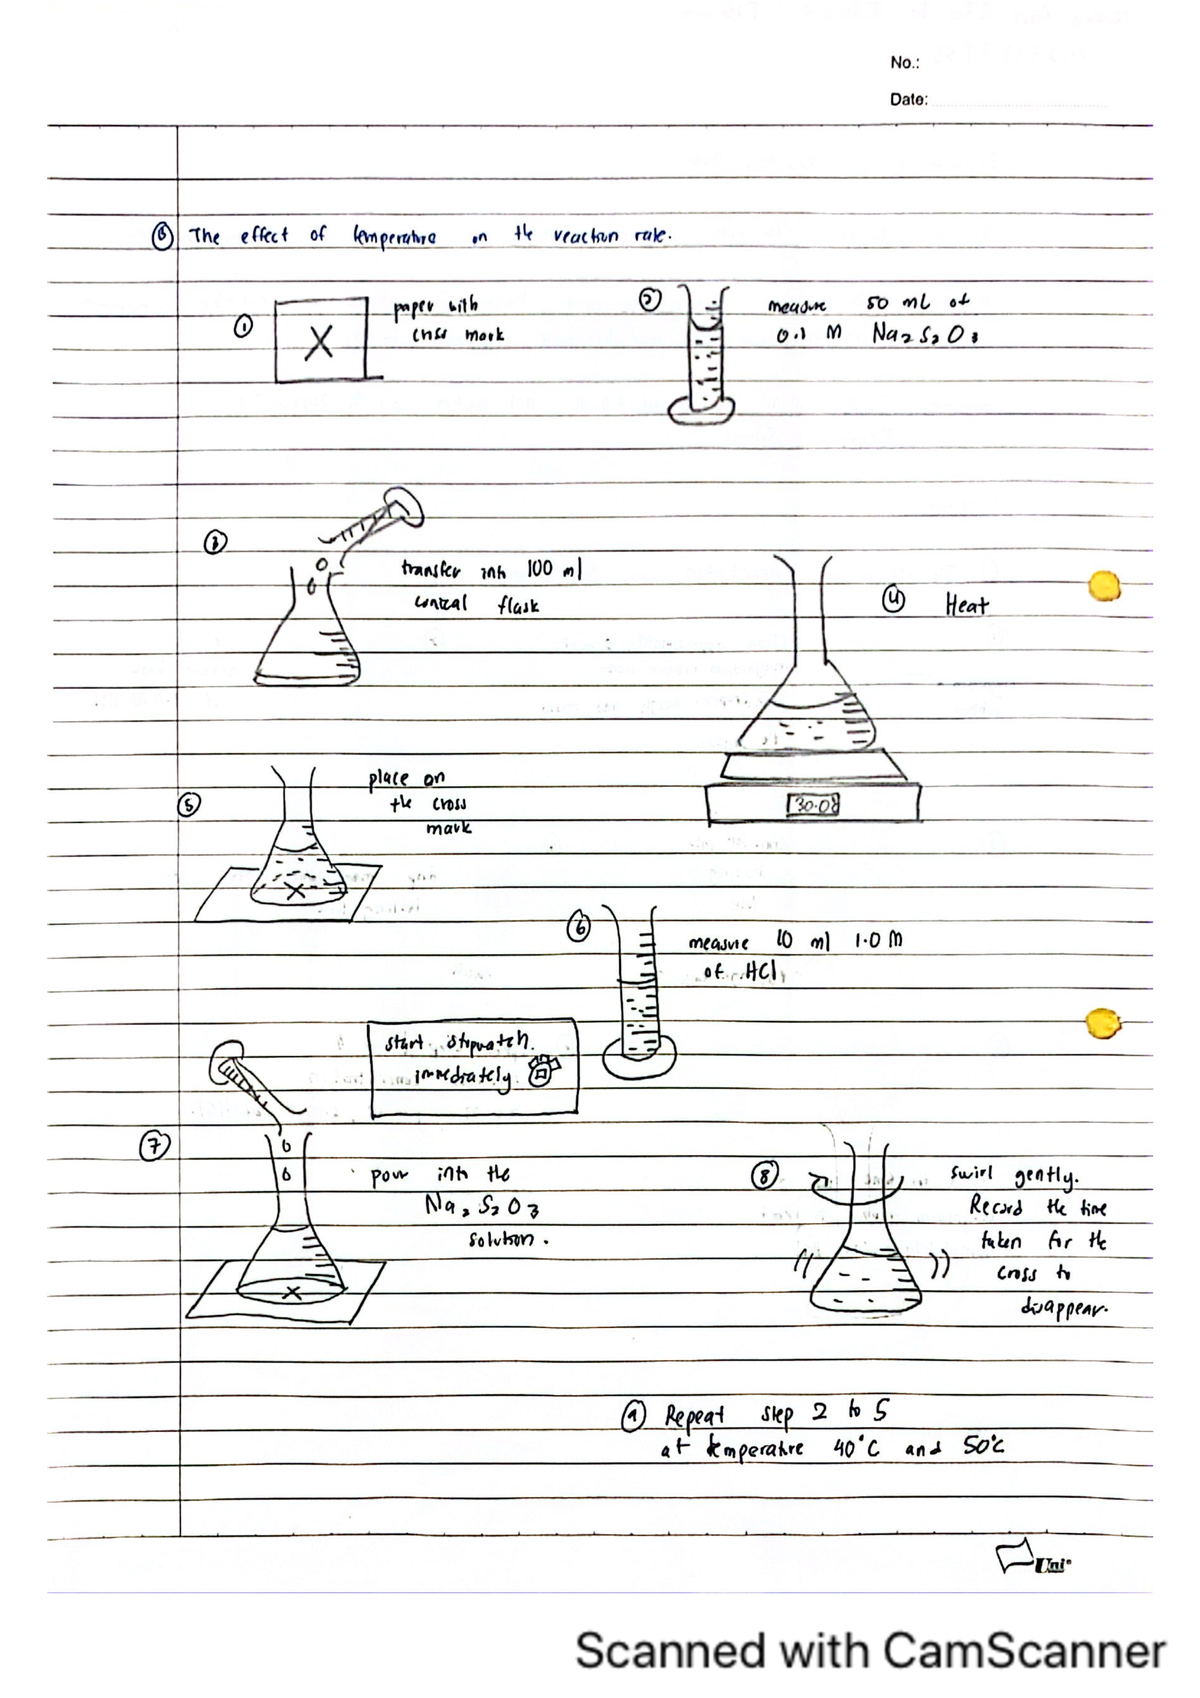 No.:
Date:
B The effect of temperature on the reaction rate.
1 paper with
cross mark
2 measure 50 ml of
0.1 M Na2S2O3
3 transfer into 100 ml
conical flask
4 Heat
30.08
5 place on
the cross
mark
X
6 measure 10 ml 1.0 M
of HCl
start stopwatch
immediately.
7 pour into the
Na2S2O3
solution.
X
8 swirl gently.
Record the time
taken for the
cross to
disappear.
9 Repeat step 2 to 5
at temperature 40°C and 50°C
Uni
Scanned with CamScanner